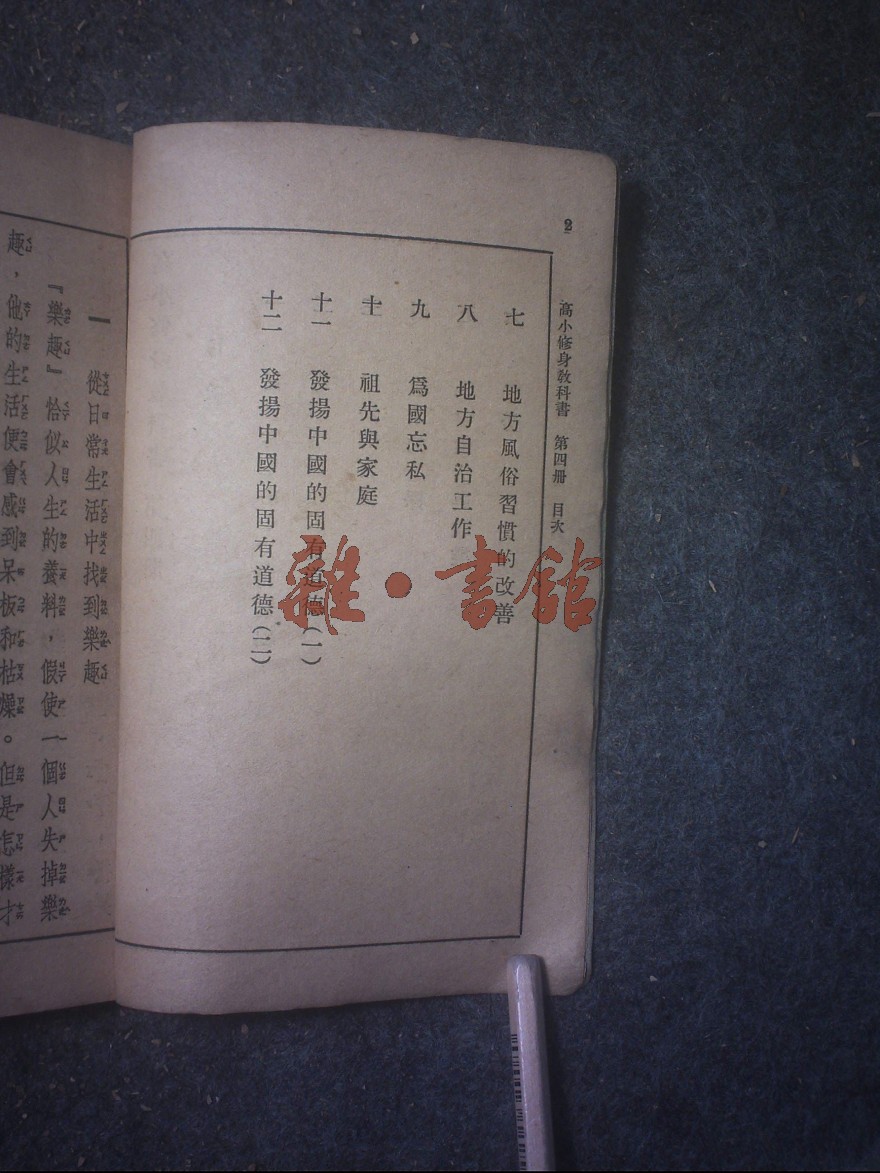 2
高小修身教科書 第四冊 目次
七 地方風俗習慣的改善
八 地方自治工作
九 爲國忘私
十 祖先與家庭
十一 發揚中國的固有道德(一)
十二 發揚中國的固有道德(二)
一 從日常生活中找到樂趣
『樂趣』恰似人生的養料，假使一個人失掉樂
趣，他的生活便會感到呆板和枯燥。但是怎樣才
雜·書館